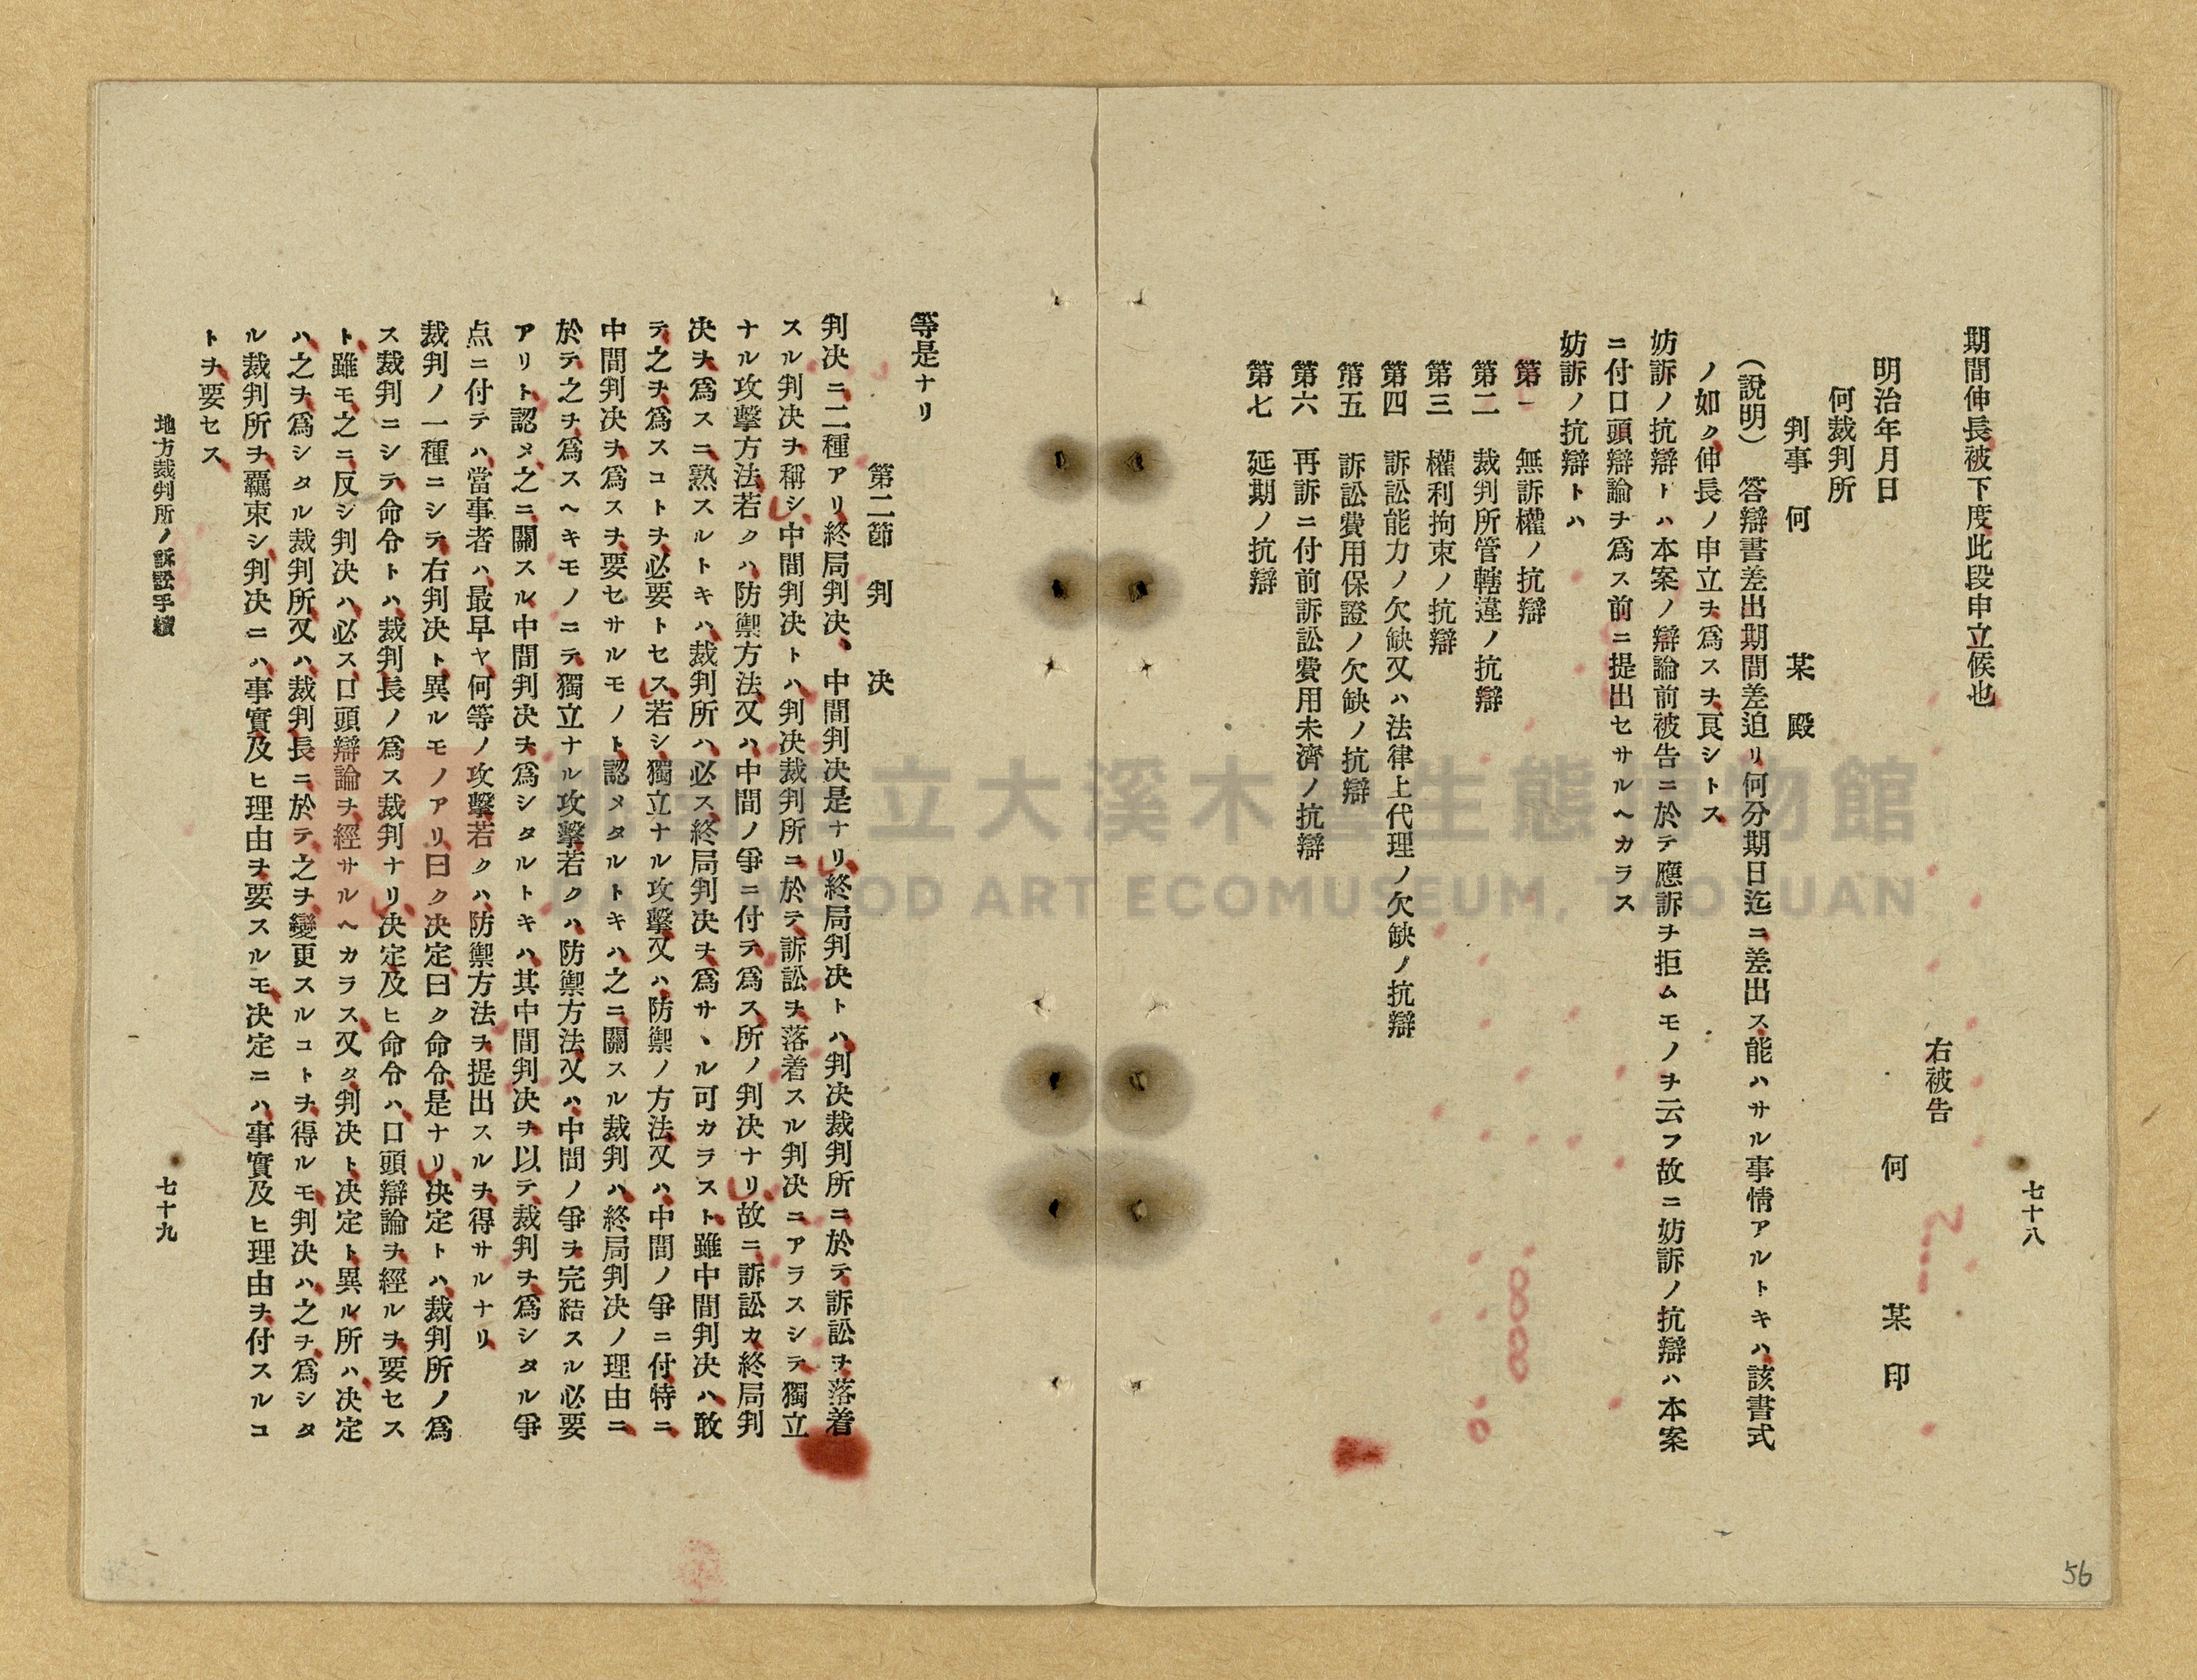 七十八
期間伸長被下度此段申立候也
右被告
何 某 印
明治年月日
何裁判所
判事 何 某 殿
(說明) 答辯書差出期間差迫リ何分期日迄ニ差出ス能ハサル事情アルトキハ該書式
ノ如ク伸長ノ申立ヲ爲スヲ良シトス
妨訴ノ抗辯トハ本案ノ辯論前被告ニ於テ應訴ヲ拒ムモノヲ云フ故ニ妨訴ノ抗辯ハ本案
ニ付口頭辯論ヲ爲ス前ニ提出セサルヘカラス
妨訴ノ抗辯トハ
第一 無訴權ノ抗辯
第二 裁判所管轄違ノ抗辯
第三 權利拘束ノ抗辯
第四 訴訟能力ノ欠缺又ハ法律上代理ノ欠缺ノ抗辯
第五 訴訟費用保證ノ欠缺ノ抗辯
第六 再訴ニ付前訴訟費用未濟ノ抗辯
第七 延期ノ抗辯
56
等是ナリ
第二節 判 決
判决ニ二種アリ終局判决、中間判决是ナリ終局判决トハ判决裁判所ニ於テ訴訟ヲ落着
スル判决ヲ稱シ中間判决トハ判决裁判所ニ於テ訴訟ヲ落着スル判决ニアラスシテ獨立
ナル攻擊方法若クハ防禦方法又ハ中間ノ爭ニ付テ爲ス所ノ判决ナリ故ニ訴訟カ終局判
决ヲ爲スニ熟スルトキハ裁判所ハ必ス終局判决ヲ爲サヽル可カラスト雖中間判决ハ敢
テ之ヲ爲スコトヲ必要トセス若シ獨立ナル攻擊又ハ防禦ノ方法又ハ中間ノ爭ニ付特ニ
中間判决ヲ爲スヲ要セサルモノト認メタルトキハ之ニ關スル裁判ハ終局判决ノ理由ニ
於テ之ヲ爲スヘキモノニテ獨立ナル攻擊若クハ防禦方法又ハ中間ノ爭ヲ完結スル必要
アリト認メ之ニ關スル中間判决ヲ爲シタルトキハ其中間判决ヲ以テ裁判ヲ爲シタル爭
点ニ付テハ當事者ハ最早ヤ何等ノ攻擊若クハ防禦方法ヲ提出スルヲ得サルナリ
裁判ノ一種ニシテ右判决ト異ルモノアリ曰ク决定曰ク命令是ナリ决定トハ裁判所ノ爲
ス裁判ニシテ命令トハ裁判長ノ爲ス裁判ナリ决定及ヒ命令ハ口頭辯論ヲ經ルヲ要セス
ト雖モ之ニ反シ判决ハ必ス口頭辯論ヲ經サルヘカラス又タ判决ト决定ト異ル所ハ决定
ハ之ヲ爲シタル裁判所又ハ裁判長ニ於テ之ヲ變更スルコトヲ得ルモ判决ハ之ヲ爲シタ
ル裁判所ヲ羈束シ判决ニハ事實及ヒ理由ヲ要スルモ决定ニハ事實及ヒ理由ヲ付スルコ
トヲ要セス
地方裁判所ノ訴訟手續
七十九
立大溪木藝生態博物館
DAXI WOOD ART ECOMUSEUM, TAOYUAN